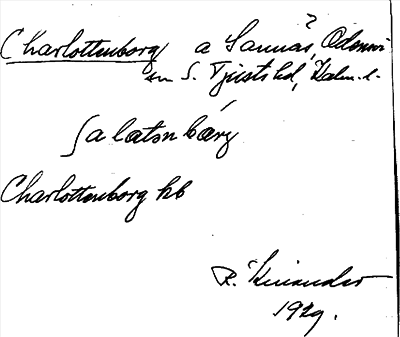 Charlottenborg a Sannäs, Odensvi
sn S. Tjusts hd, Kalm. l.
ʃalatənbärj
Charlottenborg kb
R. Kinander
1929.